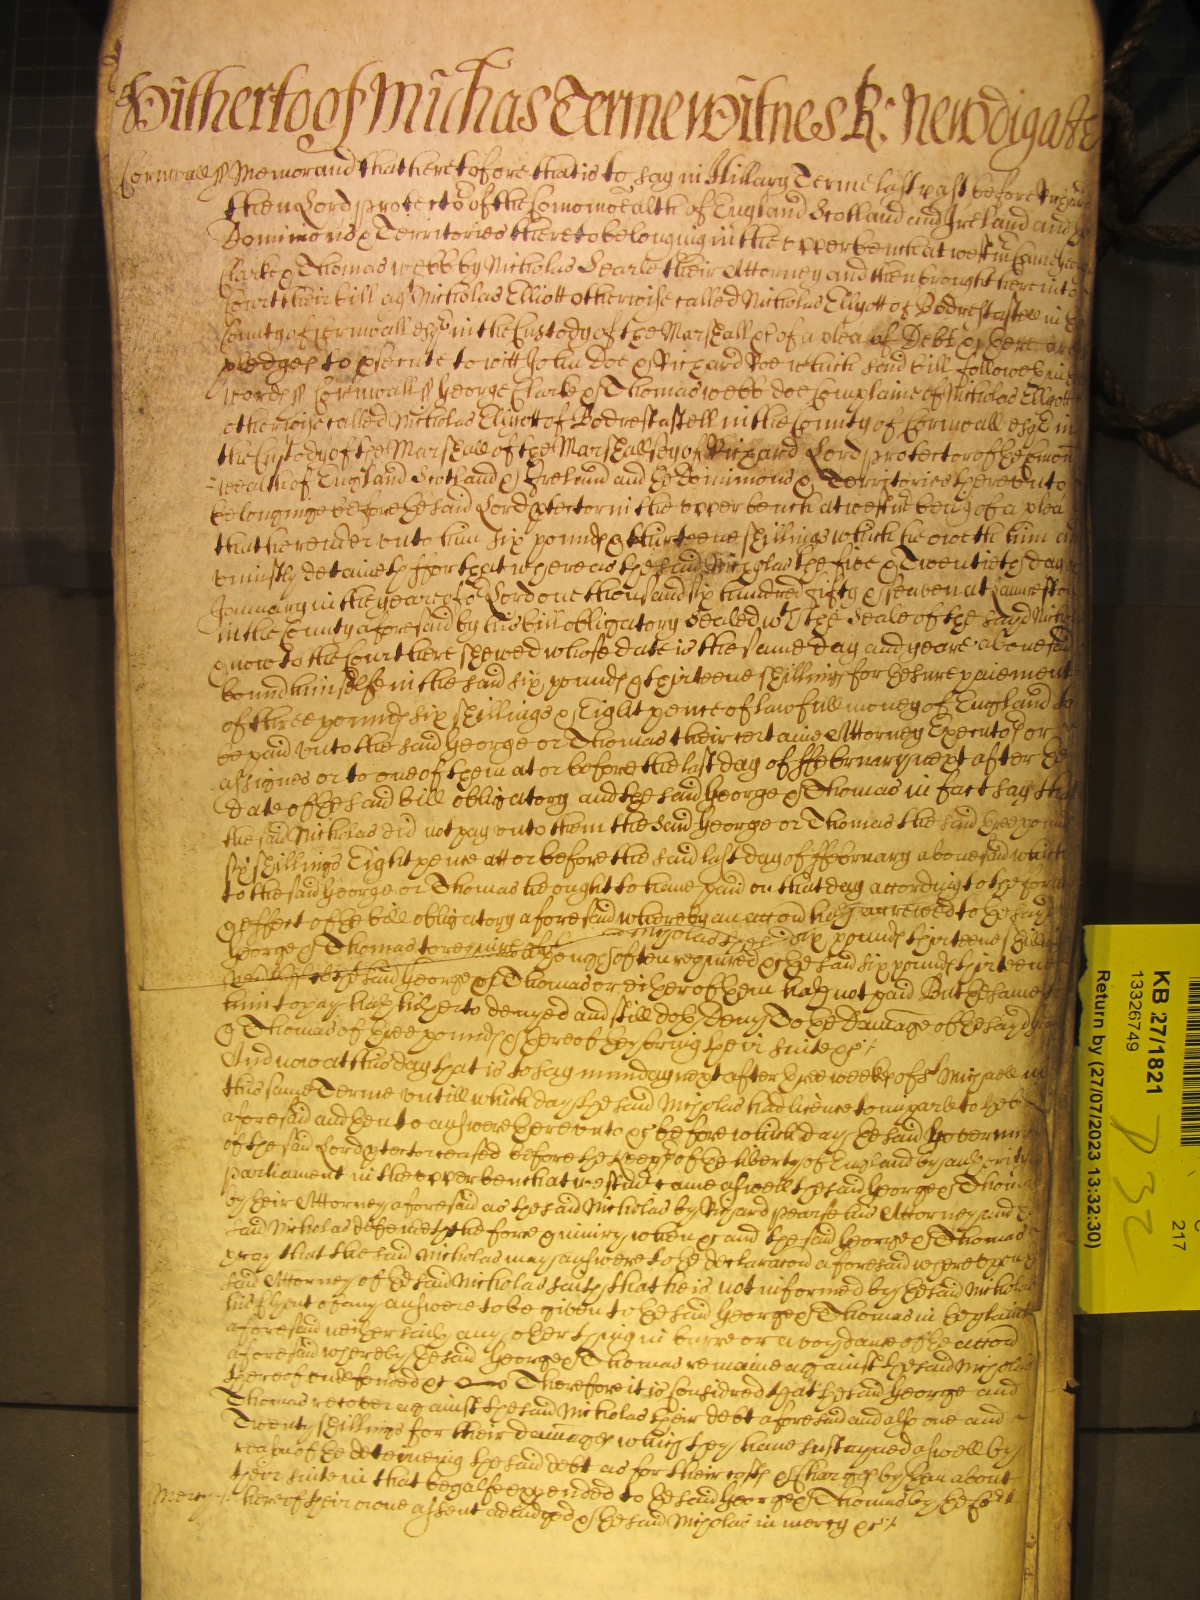 Hitherto of Michas Terme Witnes R: Newdigate
Cornwall ss Memorand that heretofore that is to say in Hillary Terme last past before Richard
then Lord protector of the Comonwealth of England Scotland and Ireland and
Dominions & Territories thereto belonging in the upper bench at westm Came George
Clarke & Thomas webb by Nicholas Searle their Attorney and then brought here into
Court their bill agt Nicholas Elliott otherwise called Nicholas Ellyott of Bodrestastew in
County of Cornwall esqr in the Custody of the Marshall &c of a plea of Debt & there are
pledges to psecute to witt John Doe & Richard Roe which said bill followeth in
words ss Cornwall ss George Clarke & Thomas webb doe Complaine of Nicholas Ellyott
otherwise called Nicholas Ellyott of Bodrestastell in the County of Cornwall esqr in
the Custody of the Marshall of the Marshallsey of Richard Lord protector of the comon
wealth of England Scotland & Ireland and the Dominions & Territories thereunto
belonginge before the said Lord ptector in the upper bench at westmr being of a plea
that he render unto him six pounds & thirteene shillings which he oweth him and
uniustly detaineth ffor that whereas the said Nicholas the five & Twentieth day of
January in the yeare of or Lord one thousand six hundred fifty & seaven at Launceston
in the County aforesaid by his bill obligatory Sealed wth the Seale of the sayd Nicho
& now to the Court here shewed whose date is the same day and yeare abovesaid
bound himselfe in the said six pounds & thirteene shillings for the sure paiement
of three pounds six shillings & Eight pence of lawfull money of England to
be paid unto the said George or Thomas their certaine Attorney Executors or
assignes or to one of them at or before the last day of ffebruary next after the
date of the said bill obligatory and the said George & Thomas in fact say that
the said Nicholas did not pay unto them the said George or Thomas the said three pounds
six shillings Eight pence att or before the said last day of ffebruary abovesaid which
to the said George or Thomas he ought to have paid on that day according to the forme
& effect of the bill obligatory aforesaid whereby an accon hath accrewed to the said
George & Thomas to require & Nicholas the six pounds thirteene shillings
though often required &c the said six pounds thirteene
to the said George & Thomas or either of them hath not paid But the same
him to pay hath hitherto denyed and still doth deny To the Damage of the sayd
& Thomas of three pounds & thereof they bring their suite &c
And now at this day that is to say munday next after three weekes of St Michaell in
this same Terme untill which day the said Nicholas had licence to imparle to the
aforesaid and then to answere thereunto &c before which day the said Governmt
of the said Lord ptector ceased before the keeps of the liberty of England by authority
parliament in the upper bench at westmr came aswell the said George & Thomas
by their Attorney aforesaid as the said Nicholas by Richard pearse his Attorney and
said Nicholas defendeth the force & iniury when &c and the said George & Thomas
pray that the said Nicholas may answere to the declaracon aforesaid whereupon
said Attorney of the said Nicholas saith that he is not informed by the said Nicholas
his Clyent of any answere to be given to the said George & Thomas in the plaint
aforesaid neither saith any other thing in barre or avoydance of the accon
aforesaid whereby the said George & Thomas remaine against the said Nicholas
thereof undefended &c Therefore it is considred that the said George and
Thomas recover against the said Nicholas their debt aforesaid and also one and
Twenty shillings for their damages which they have sustayned aswell by
reason of the deteineing the said debt as for their costs & charges by them about
their suite in that behalfe expended to the said George & Thomas by the Cort
Mercy here of their owne assent adiudged & the said Nicholas in mercy &c
KB 27/1821
13326749
Return by (27/07/2023 13:32:30)
217
P32